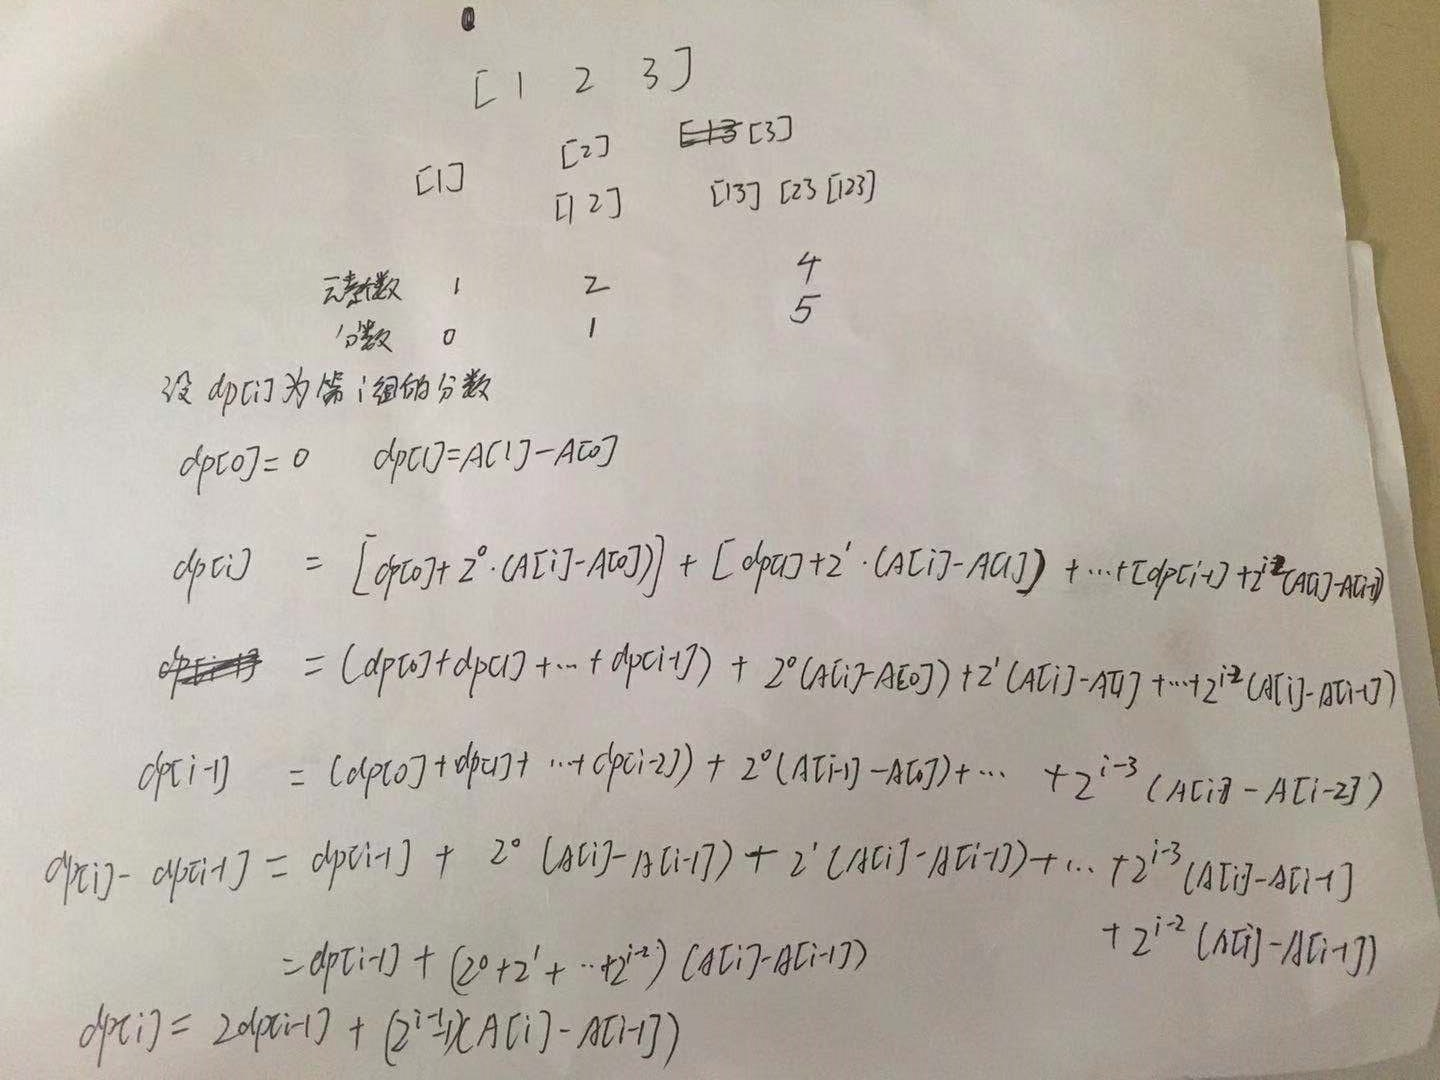 [ 1 2 3 ]
[2] [3]
[1]
[1 2] [13] [23 [123]
元素个数 1 2 4
分数 0 1 5
设 dp[i] 为第 i 组的分数
dp[0] = 0 dp[1] = A[1] - A[0]
dp[i] = [dp[0] + 2⁰·(A[i] - A[0])] + [dp[1] + 2¹·(A[i] - A[1]) + ... + [dp[i-1] + 2ⁱ⁻²(A[i] - A[i-1])
= (dp[0] + dp[1] + ... + dp[i-1]) + 2⁰(A[i] - A[0]) + 2¹(A[i] - A[1] + ... + 2ⁱ⁻²(A[i] - A[i-1])
dp[i-1] = (dp[0] + dp[1] + ... + dp[i-2]) + 2⁰(A[i-1] - A[0]) + ... + 2ⁱ⁻³(A[i-1] - A[i-2])
dp[i] - dp[i-1] = dp[i-1] + 2⁰(A[i] - A[i-1]) + 2¹(A[i] - A[i-1]) + ... + 2ⁱ⁻³(A[i] - A[i-1]
+ 2ⁱ⁻²(A[i] - A[i-1])
= dp[i-1] + (2⁰ + 2¹ + ... + 2ⁱ⁻²)(A[i] - A[i-1])
dp[i] = 2dp[i-1] + (2ⁱ⁻¹-1)(A[i] - A[i-1])